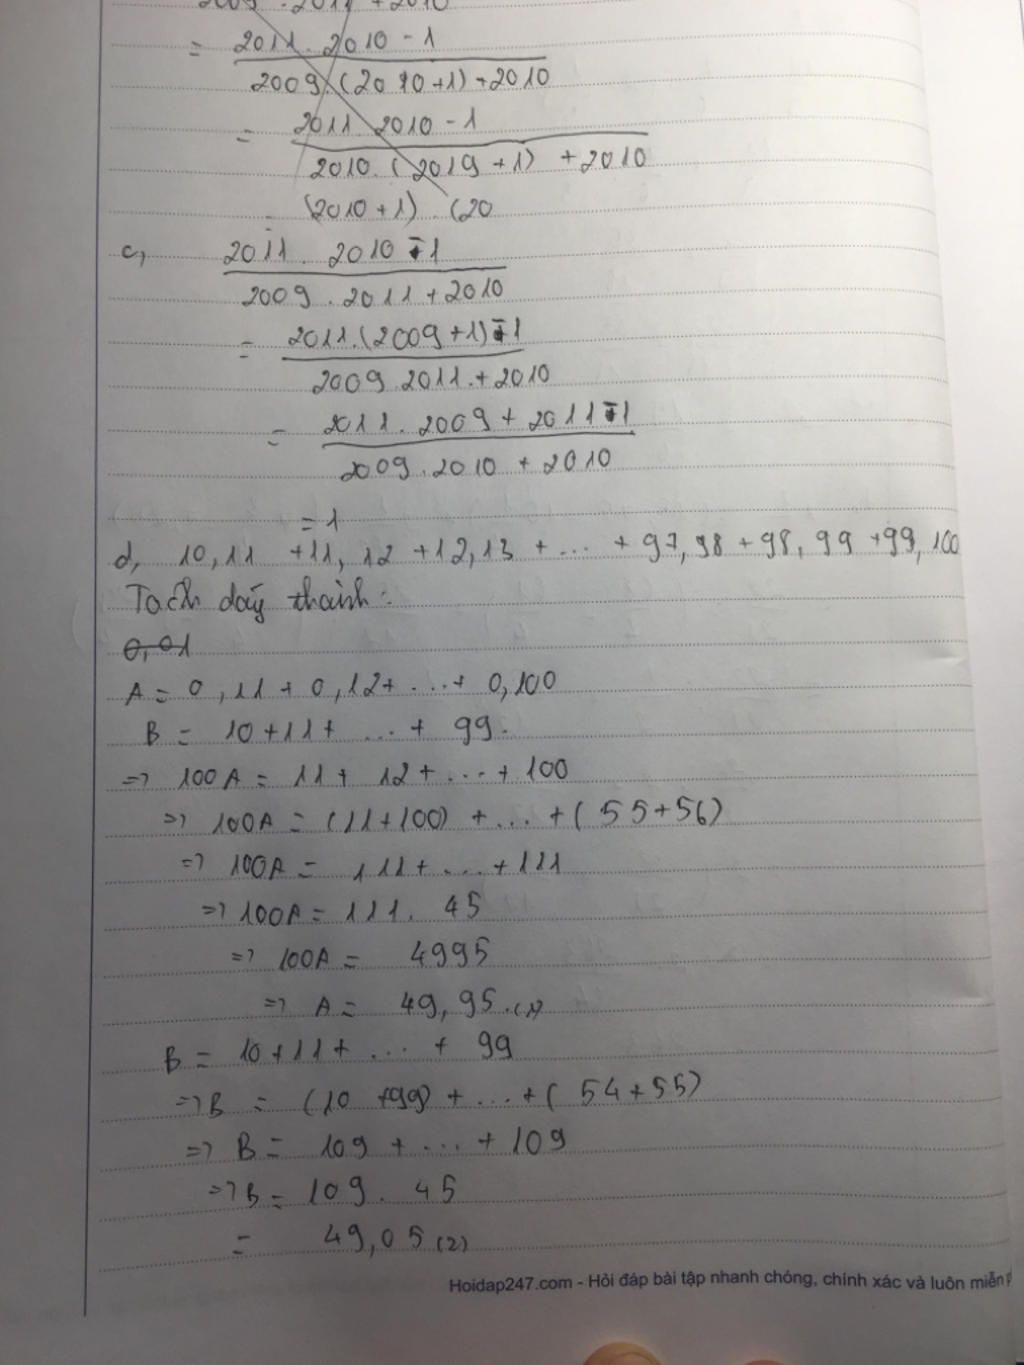 2009 . 2011 + 2010
= 2011 . 2010 - 1
2009 . (2010+1) + 2010
= 2011 2010 - 1
2010. (2019 + 1) + 2010
(2010+1) . (20
c, 2011 . 2010 - 1
2009 . 2011 + 2010
= 2011.(2009+1) - 1
2009 2011.+2010
= 2011. 2009 + 2011 - 1
2009.2010 + 2010
= 1
d, 10,11 +11,12 +12,13 + ... + 97,98 + 98,99 +99,100
Tách dãy thành:
0,01
A = 0,11 + 0,12+ ...+ 0,100
B = 10+11+ ... + 99.
=> 100A = 11+ 12+ ...+ 100
=> 100A = (11+100) + ... +( 55+56)
=> 100A = 111+ ... +111
=> 100A = 111. 45
=> 100A = 4995
=> A = 49,95.(1)
B = 10+11+ ... + 99
=> B = (10 +99) + ... +( 54+55)
=> B = 109 + ... + 109
=> B = 109. 45
= 49,05 (2)
Hoidap247.com - Hỏi đáp bài tập nhanh chóng, chính xác và luôn miễn p